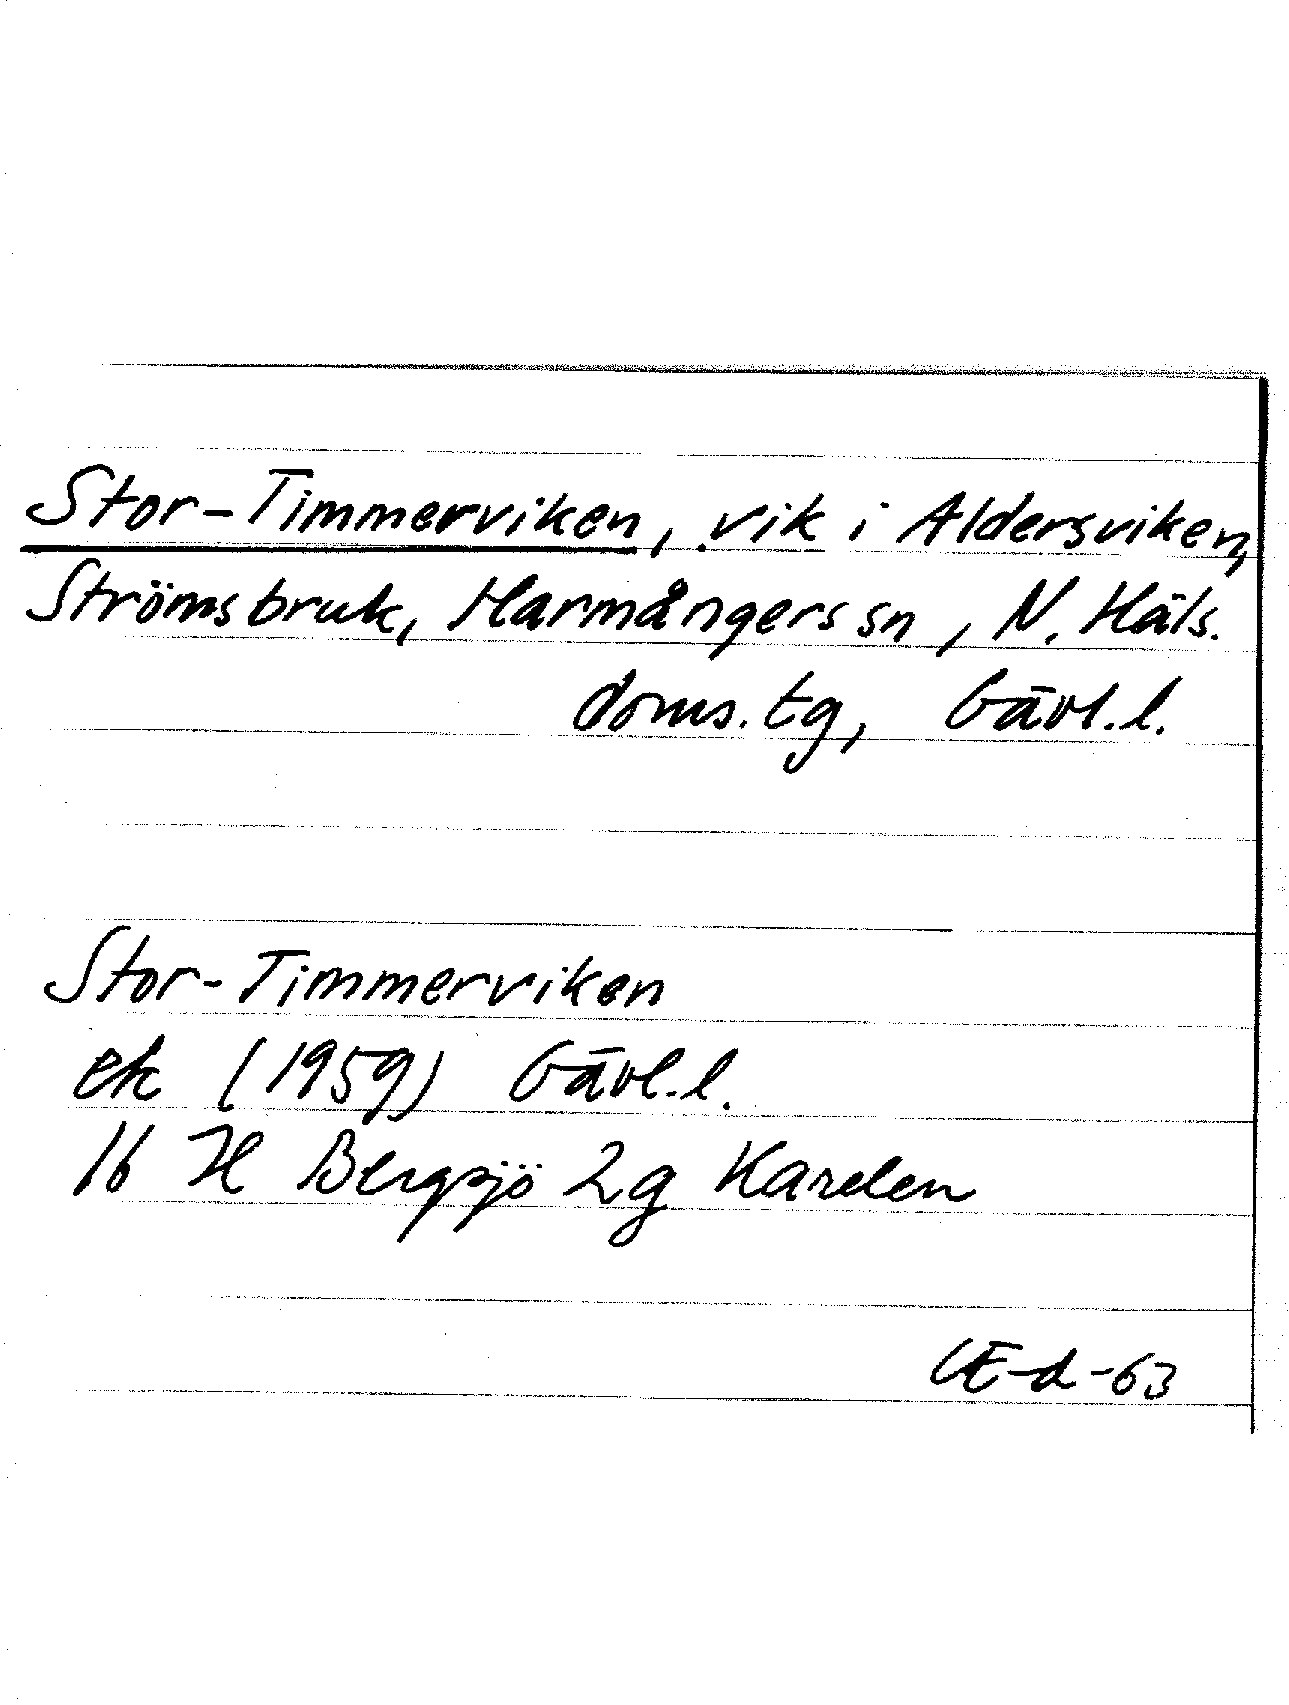 Stor-Timmerviken, vik i Aldersviken,
Strömsbruk, Harmångers sn, N. Häls.
doms. tg, Gävl. l.
Stor-Timmerviken
ek (1959) Gävl. l.
16 H Bergsjö 2g Karelen
CE-d-63